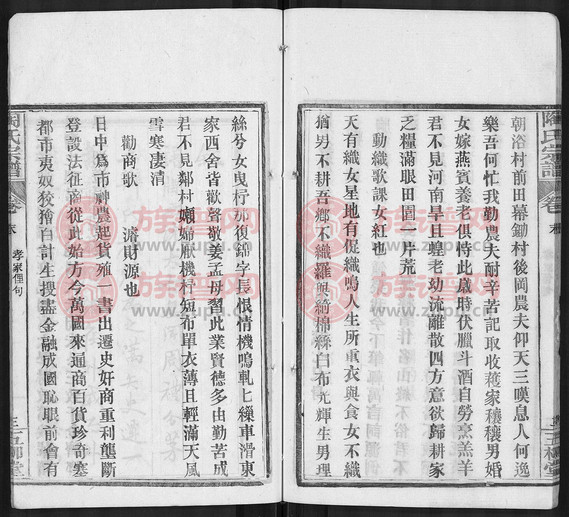 朝浴村前田暮鋤村後岡農夫仰天三嘆息人何逸
樂吾何忙我勸農夫耐辛苦記取收穫家穰穰男婚
女嫁燕賓養老俱恃此歲時伏臘斗酒自勞烹羔羊
君不見河南旱且蝗老幼流離散四方意欲歸耕家
乏糧滿眼田園一片荒
織女歌課女紅也
天有織女星地有促織鳴人生所重衣與食女不織
猶男不耕吾鄉不織羅與綺棉絲白布光輝生男理
絲兮女曳杼那復錦字長恨情機鳴軋七繅車滑東
家西舍皆歡聲敬姜孟母習此業賢德多由勤苦成
君不見鄰村嬾婦厭機杼短布單衣薄且輕滿天風
雪寒凄清
勸商歌 濬財源也
日中為市神農起貨殖一書出遷史奸商重利壟斷
登設法征商從此始方今萬國來通商百貨珍奇塞
都市夷奴狡獪白計生搜盡金融成國恥眼前會有
陶氏宗譜
卷
末
孝家俚句
三
五柳堂